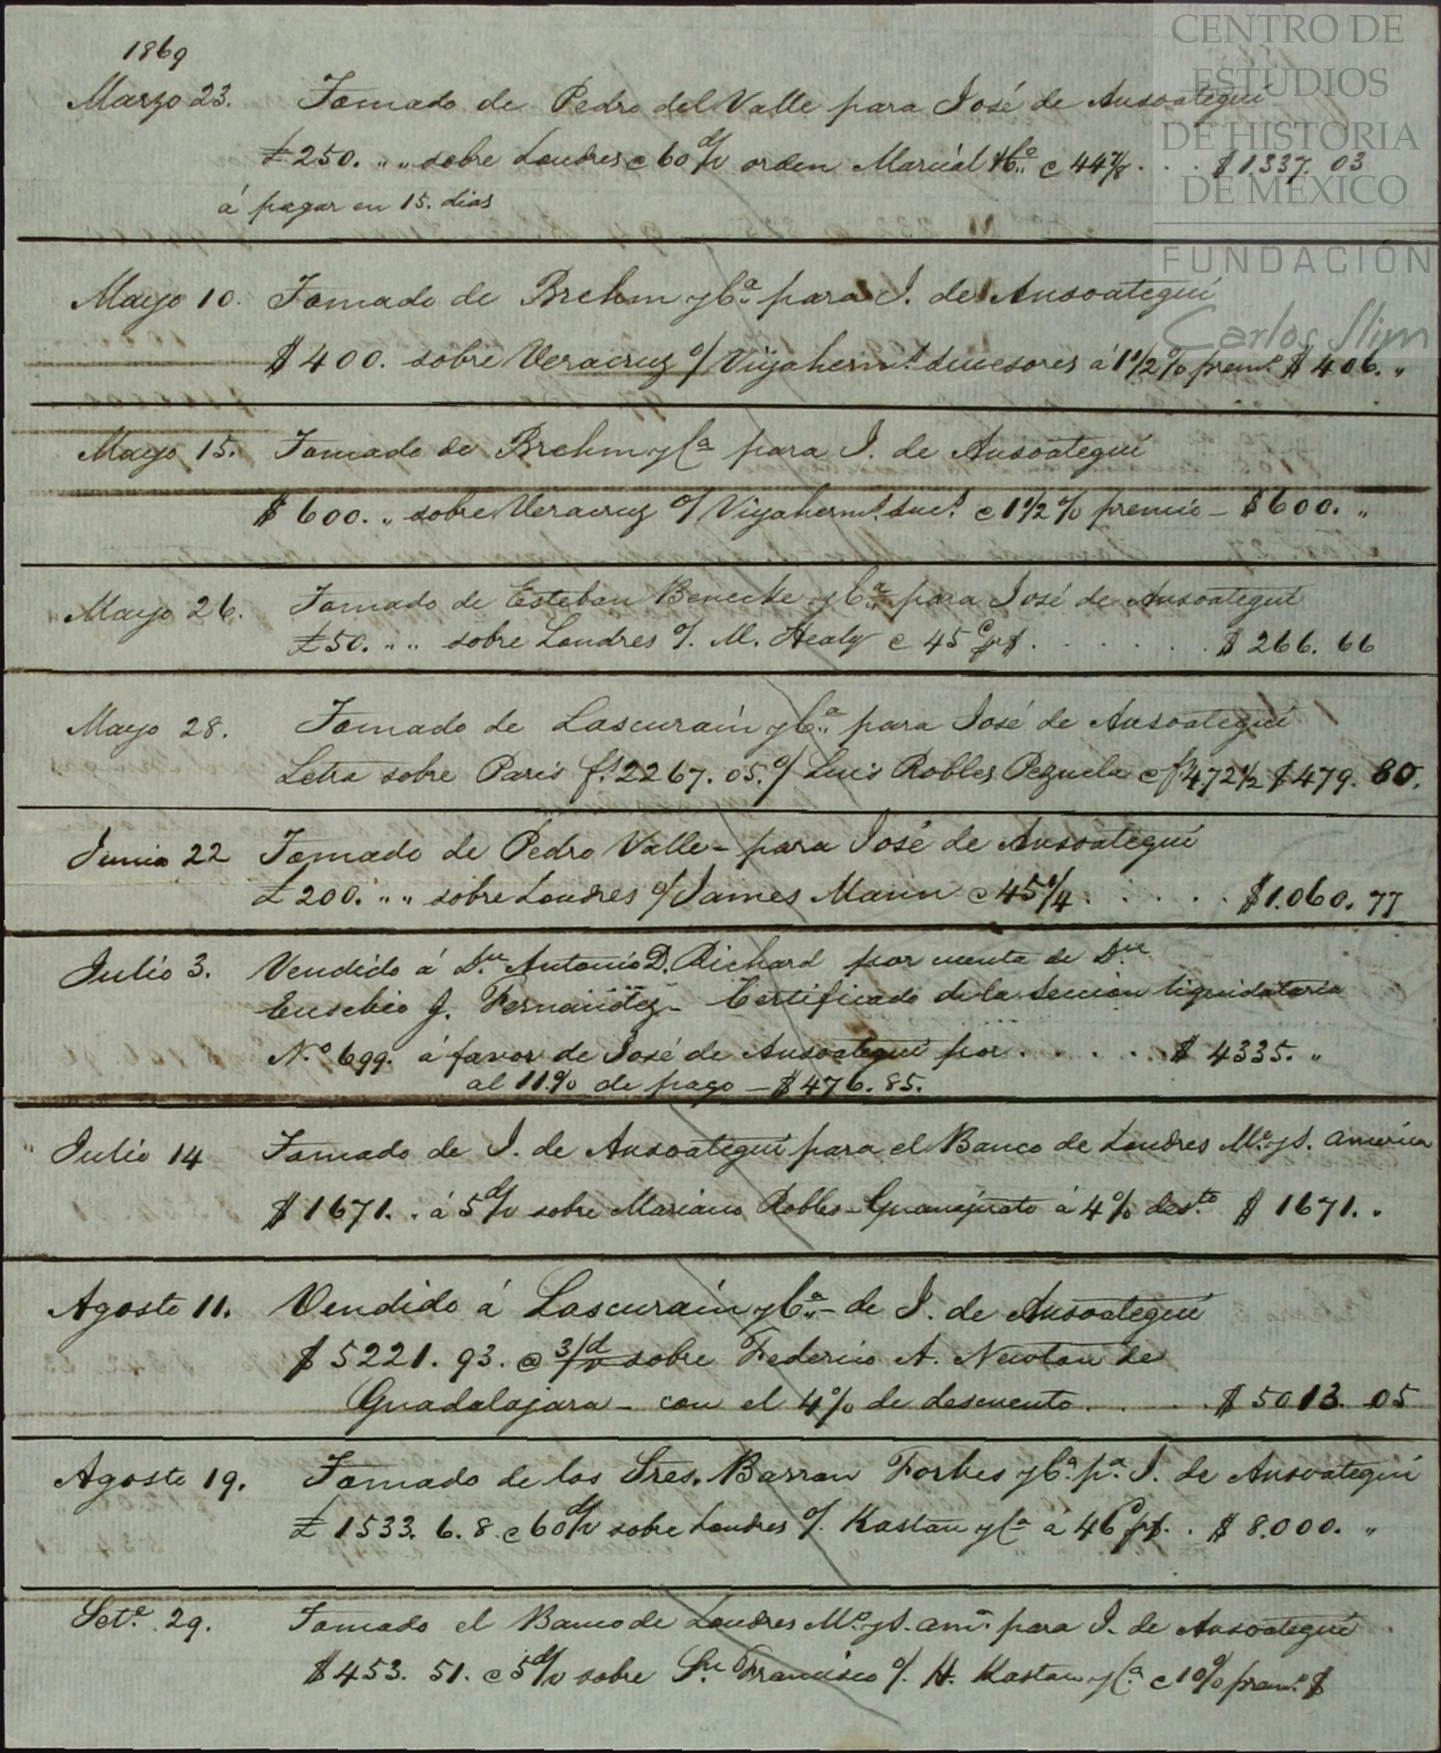 1869
Marzo 23. Tomado de Pedro del Valle para José de Ansoategui
£ 250. „ „ sobre Londres @ 60 d/v orden Marcial @ 44 7/8 . . . $ 1.337. 03
á pagar en 15. dias
Mayo 10. Tomado de Brehm y Ca. para J. de Ansoategui
$ 400. sobre Veracruz o/ Viya herms. Sucesores á 1 1/2 % premo. $ 406. „
Mayo 15. Tomado de Brehm y Ca para J. de Ansoategui
$ 600. „ sobre Veracruz o/ Viya herms. Sucs. @ 1 1/2 % premio – $ 600. „
Mayo 26. Tomado de Esteban Benecke y Ca. para José de Ansoategui
£ 50. „ „ sobre Londres o/. M. Healy @ 45 . . . . . . $ 266. 66
Mayo 28. Tomado de Lascurain y Ca. para José de Ansoategui
Letra sobre Paris fs. 2267. 05. o/ Luis Robles Pezuela @ f 4.72 1/2 $ 479. 80.
Junio 22 Tomado de Pedro Valle – para José de Ansoategui
£ 200. „ „ sobre Londres o/ James Mann @ 45 1/4 . . . . . $ 1.060. 77
Julio 3. Vendido á Dn. Antonio D. Richard por cuenta de Dn
Eusebio J. Fernandez – Certificado de la Seccion liquidataria
N.o 699. á favor de José de Ansoategui por . . . . . $ 4335. „
al 11.% de pago – $ 476. 85.
Julio 14 Tomado de J. de Ansoategui para el Banco de Londres Mo. y S. America
$ 1671. . á 5 d/v sobre Mariano Robles – Guanajuato á 4 % desto. $ 1671. .
Agosto 11. Vendido á Lascurain y Ca. – de J. de Ansoategui
$ 5221. 93. @ 3/d v sobre Federico A. Newton de
Guadalajara – con el 4 % de descuento . . . . . $ 5013. 05
Agosto 19. Tomado de los Sres. Barron Forbes y Ca. pa. J. de Ansoategui
£ 1533. 6. 8. @ 60 d/v sobre Londres o/. Kastan y Ca á 46 . . $ 8.000. „
Sete. 29. Tomado el Banco de Londres Mo. y S. Ama. para J. de Ansoategui
$ 453. 51. @ 5 d/v sobre Sn. Francisco o/. H. Kastan y Ca. @ 10 % premo. $
CENTRO DE
ESTUDIOS
DE HISTORIA
DE MÉXICO
FUNDACIÓN
Carlos Slim